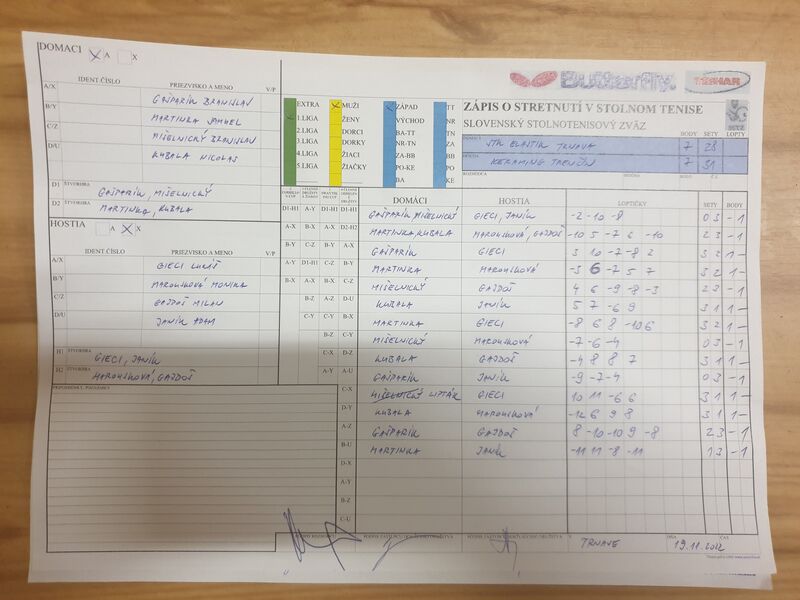 DOMACI A X
IDENT ČÍSLO PRIEZVISKO A MENO V/P
A/X GAŠPARÍK BRANISLAV
B/Y MARTINKA SAMUEL
C/Z MIŠELNICKÝ BRANISLAV
D/U KUBALA NICOLAS
D1 ŠTVORHRA GAŠPARÍK, MIŠELNICKÝ
D2 ŠTVORHRA MARTINKA, KUBALA
HOSTIA A X
IDENT ČÍSLO PRIEZVISKO A MENO V/P
A/X GIECI LUKÁŠ
B/Y MAROUSKOVÁ MONIKA
C/Z GAJDOŠ MILAN
D/U JANÍK ADAM
H1 ŠTVORHRA GIECI, JANÍK
H2 ŠTVORHRA MAROUSKOVÁ, GAJDOŠ
Butterfly TIBHAR
EXTRA MUŽI ZÁPAD TT
1.LIGA ŽENY VÝCHOD NR
2.LIGA DORCI BA-TT BB
3.LIGA DORKY NR-TN ZA
4.LIGA ŽIACI ZA-BB PO
5.LIGA ŽIAČKY PO-KE KE
BA
ZÁPIS O STRETNUTÍ V STOLNOM TENISE
SLOVENSKÝ STOLNOTENISOVÝ ZVÄZ
BODY SETY LOPTY
STK ELASTIK TRNAVA 7 28
KERAMING TRENČÍN 7 31
DOMÁCI HOSTIA LOPTIČKY SETY BODY
GAŠPARÍK MIŠELNICKÝ GIECI, JANÍK -2 -10 -8 0 3 -1
MARTINKA, KUBALA MAROUSKOVÁ, GAJDOŠ -10 5 -7 6 -10 2 3 -1
GAŠPARÍK GIECI 3 10 -7 -8 2 3 2 1-
MARTINKA MAROUSKOVÁ -3 6 -7 5 7 3 2 1-
MIŠELNICKÝ GAJDOŠ 4 6 -9 -8 -3 2 3 -1
KUBALA JANÍK 5 7 -6 9 3 1 1-
MARTINKA GIECI -8 6 8 -10 6 3 2 1-
MIŠELNICKÝ MAROUSKOVÁ -7 -6 -4 0 3 -1
KUBALA GAJDOŠ -4 8 8 7 3 1 1-
GAŠPARÍK JANÍK -9 -7 -4 0 3 -1
MIŠELNICKÝ LIPTÁK GIECI 10 11 -6 6 3 1 1-
KUBALA MAROUSKOVÁ -12 6 9 8 3 1 1-
GAŠPARÍK GAJDOŠ 8 -10 -10 9 -8 2 3 -1
MARTINKA JANÍK -11 11 -8 -11 1 3 -1
TRNAVE 19.11.2022